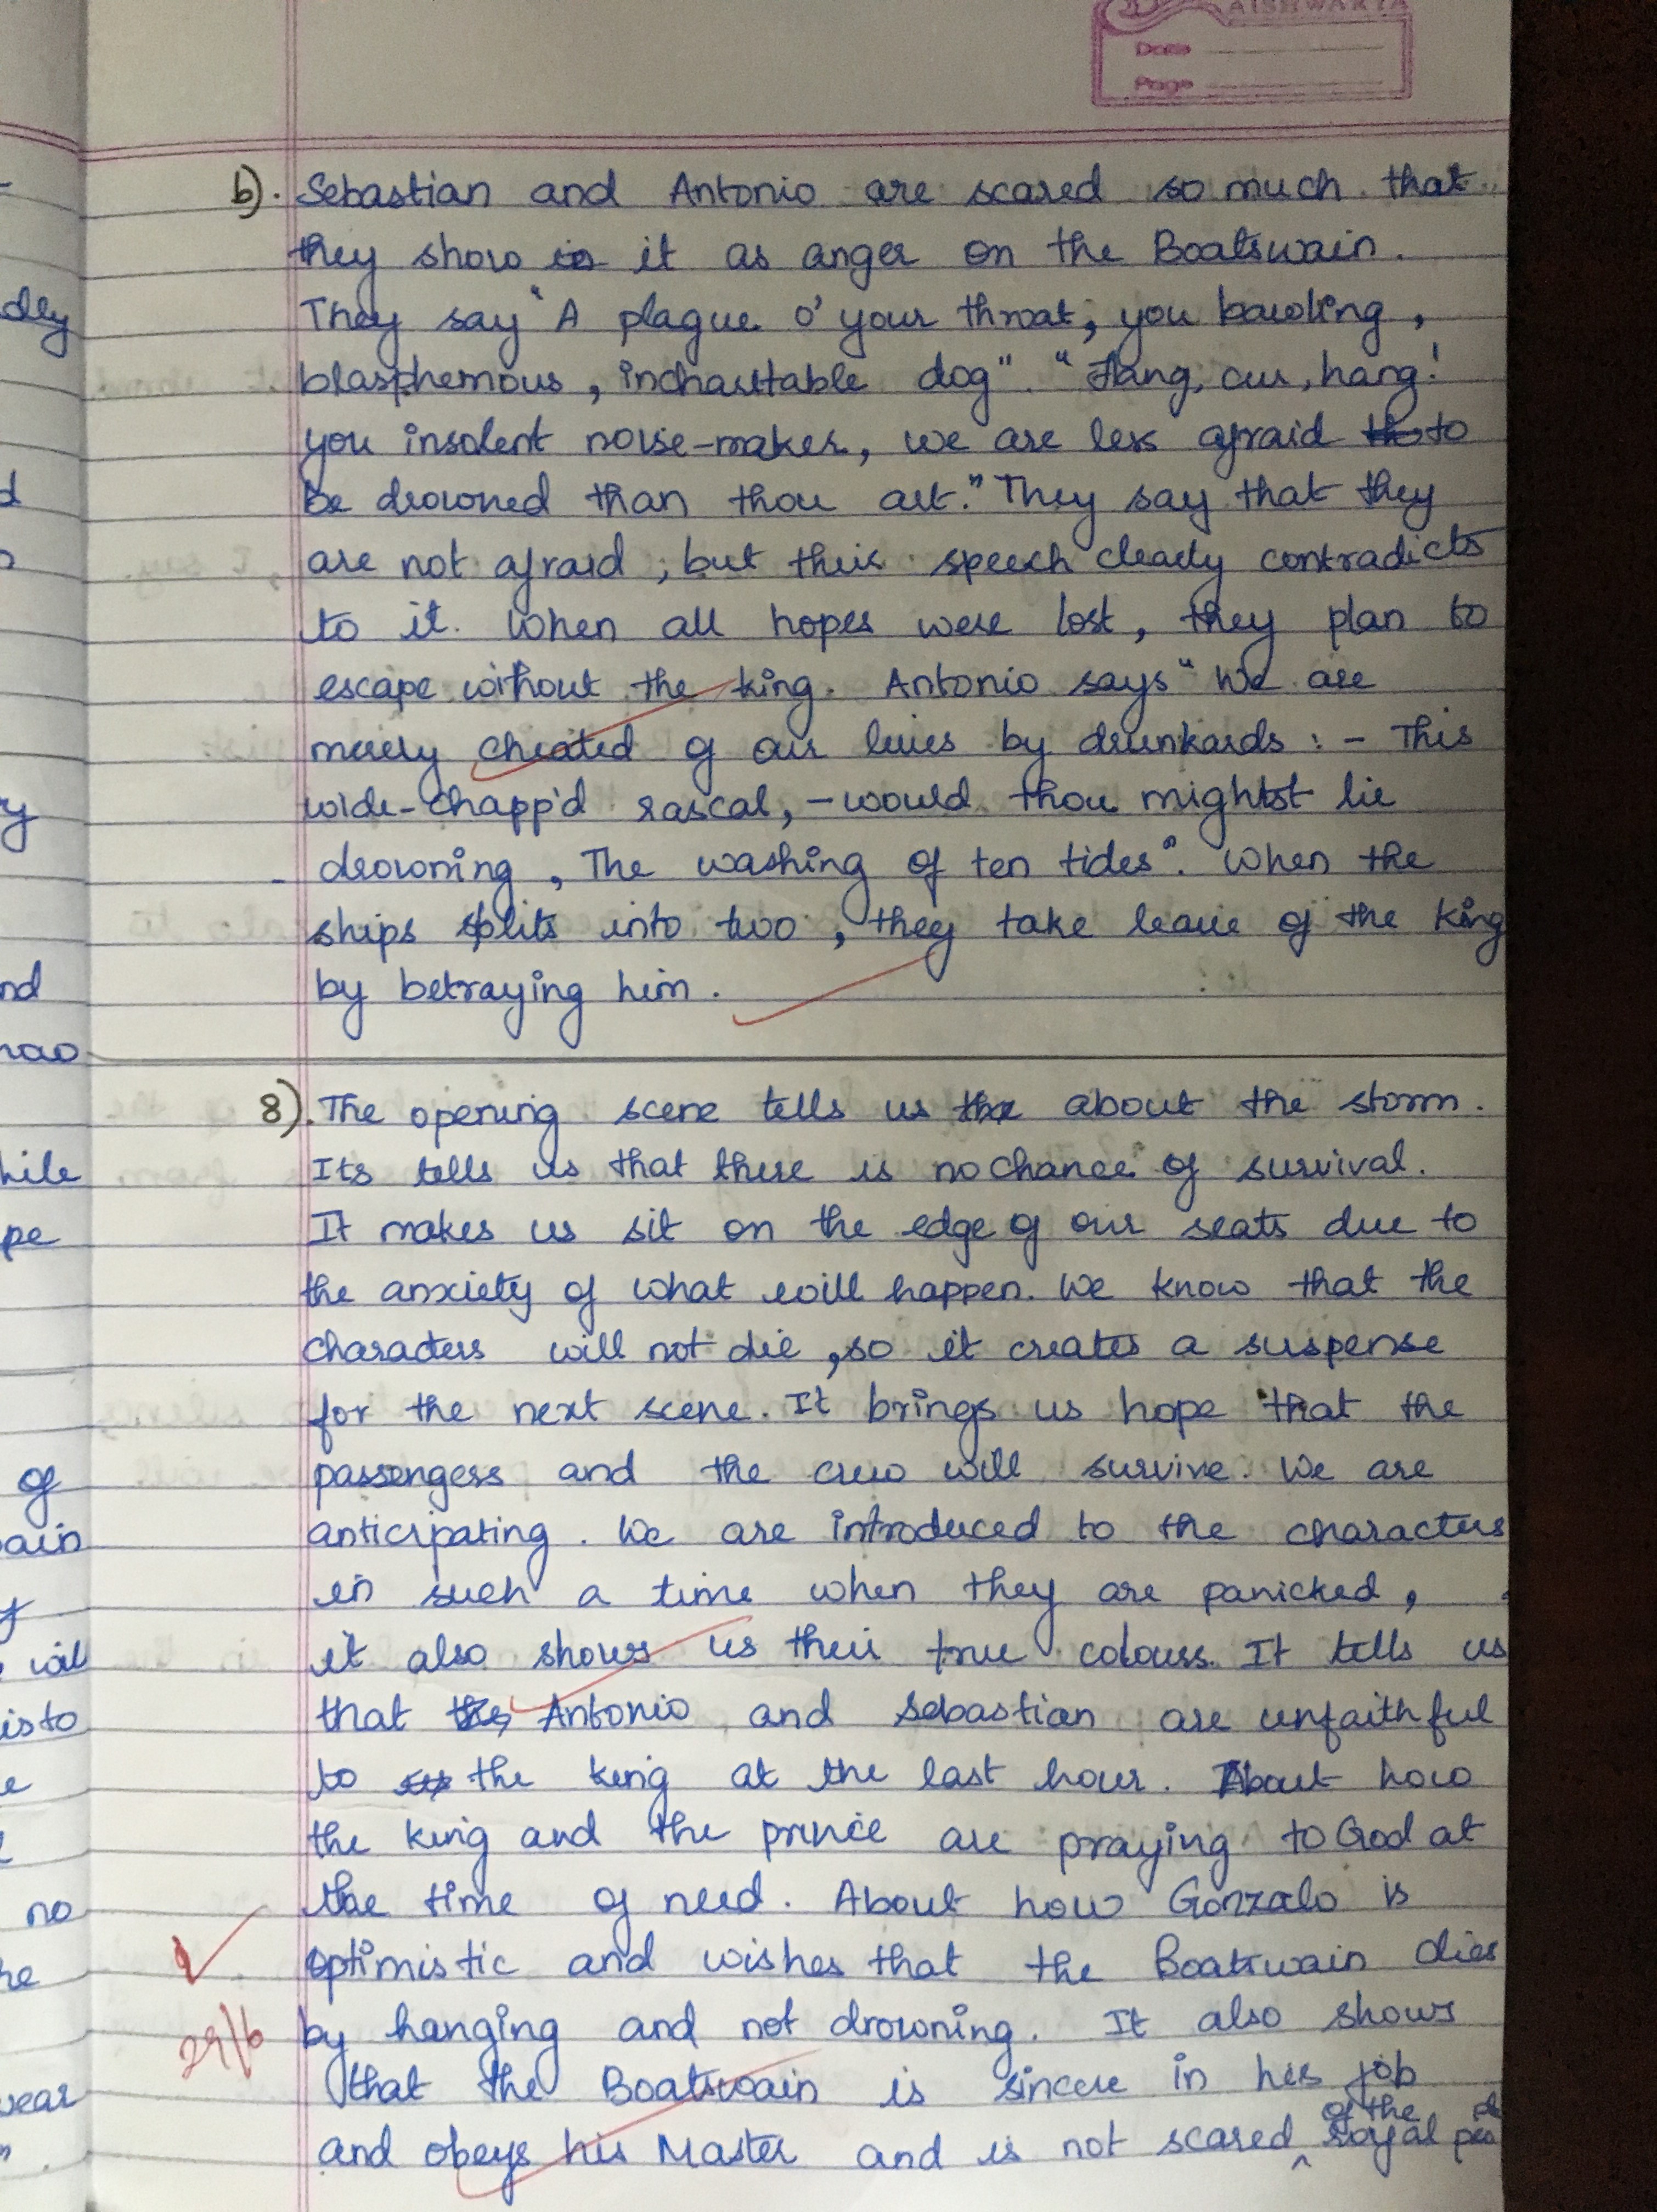 AISHWARYA
Date
Page
b). Sebastian and Antonio are scared so much that
they show it as anger on the Boatswain.
They say "A plague o' your throat, you bawling,
blasphemous, incharitable dog". "Hang, cur, hang!
you insolent noise-maker, we are less afraid to
be drowned than thou art." They say that they
are not afraid, but their speech clearly contradicts
to it. When all hopes were lost, they plan to
escape without the king. Antonio says "We are
merely cheated of our lives by drunkards : - This
wide-chapp'd rascal, - would thou mightst lie
drowning, The washing of ten tides". When the
ships splits into two, they take leave of the king
by betraying him.
8). The opening scene tells us about the storm.
Its tells us that there is no chance of survival.
It makes us sit on the edge of our seats due to
the anxiety of what will happen. We know that the
characters will not die, so it creates a suspense
for the next scene. It brings us hope that the
passengers and the crew will survive. We are
anticipating. We are introduced to the characters
in such a time when they are panicked,
it also shows us their true colours. It tells us
that Antonio and Sebastian are unfaithful
to the king at the last hour. About how
the king and the prince are praying to God at
the time of need. About how Gonzalo is
optimistic and wishes that the Boatswain dies
by hanging and not drowning. It also shows
that the Boatswain is sincere in his job
of the
and obeys his Master and is not scared royal
29/6
dly
d
y
nd
hile
pe
of
ain
will
isto
e
no
he
wear